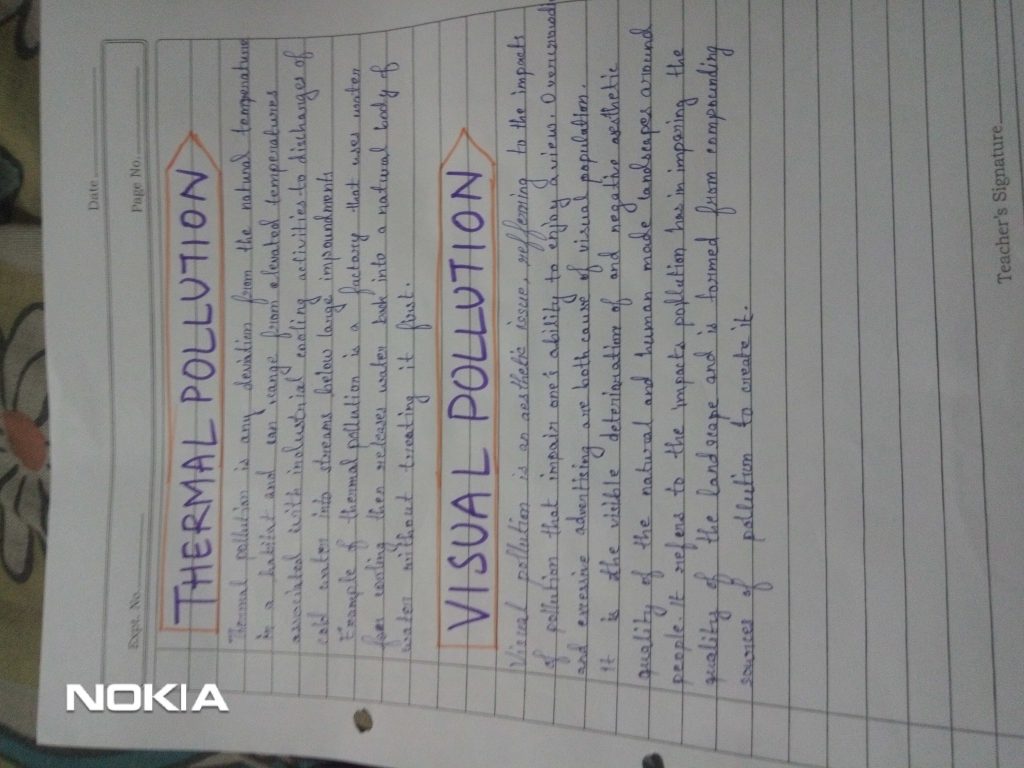 Date
Page No.
Expt. No.
THERMAL POLLUTION
Thermal pollution is any deviation from the natural temperature
in a habitat and can range from elevated temperatures
associated with industrial cooling activities to discharges of
cold water into streams below large impoundments
Example of thermal pollution is a factory that uses water
for cooling then releases water back into a natural body of
water without treating it first.
VISUAL POLLUTION
Visual pollution is an aesthetic issue, reffering to the impacts
of pollution that impair one's ability to enjoy a view.
and excessive advertising are both cause of visual population.
It is the visible deterioration of and negative aesthetic
quality of the natural and human made landscapes around
people. It refers to the impacts pollution has in the
quality of the landscape and is formed from compounding
sources of pollution to create it.
Teacher's Signature
NOKIA